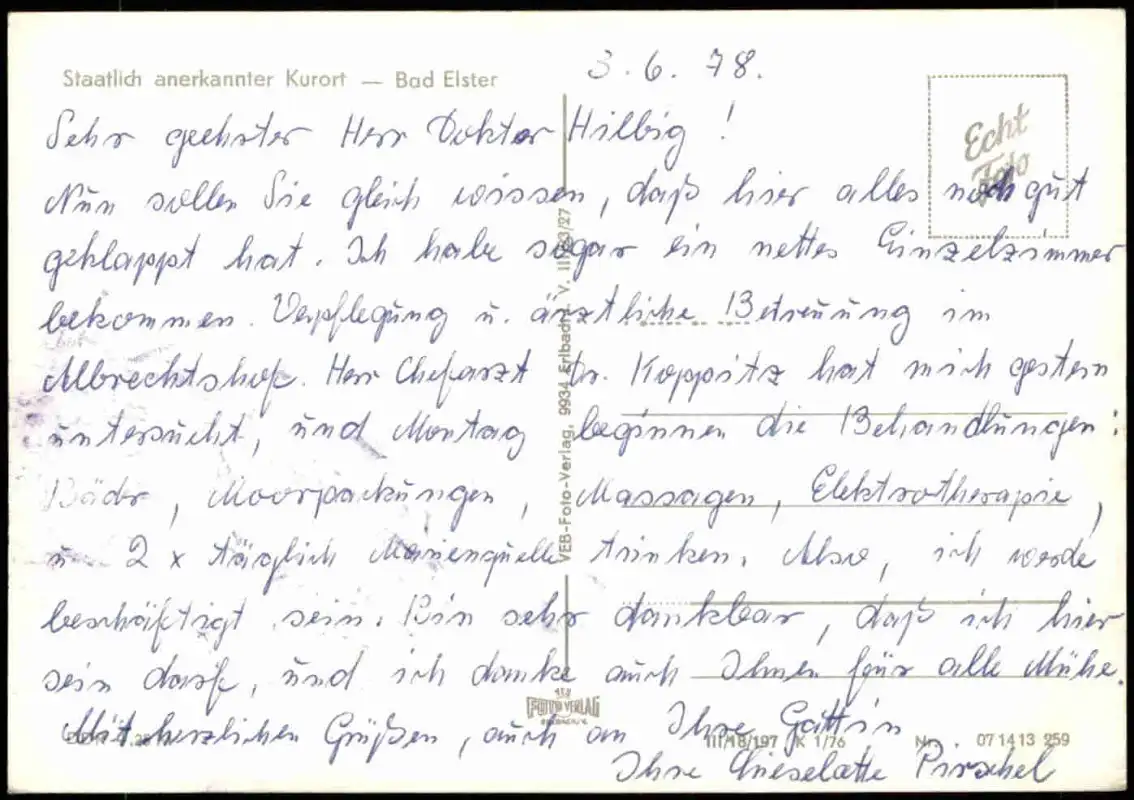 Staatlich anerkannter Kurort — Bad Elster
3.6.78.
Echt
Foto
Sehr geehrter Herr Doktor Hilbig!
Nun sollen Sie gleich wissen, daß hier alles noch gut
geklappt hat. Ich habe sogar ein nettes Einzelzimmer
bekommen. Verpflegung u. ärztliche Betreuung im
Albrechtshof. Herr Chefarzt Dr. Koppitz hat mich gestern
untersucht, und Montag beginnen die Behandlungen:
Bäder, Moorpackungen, Massagen, Elektrotherapie,
u. 2 x täglich Marienquelle trinken. Also, ich werde
beschäftigt sein. Bin sehr dankbar, daß ich hier
sein darf, und ich danke auch Ihnen für alle Mühe.
Mit herzlichen Grüßen, auch an Ihre Gattin
Ihre Lieselotte Pirschel
VEB-Foto-Verlag, 9934 Erlbach i. V.
FOTO VERLAG
ERLBACH/V.
III/18/197 K 1/76 Nr. 07 14 13 259